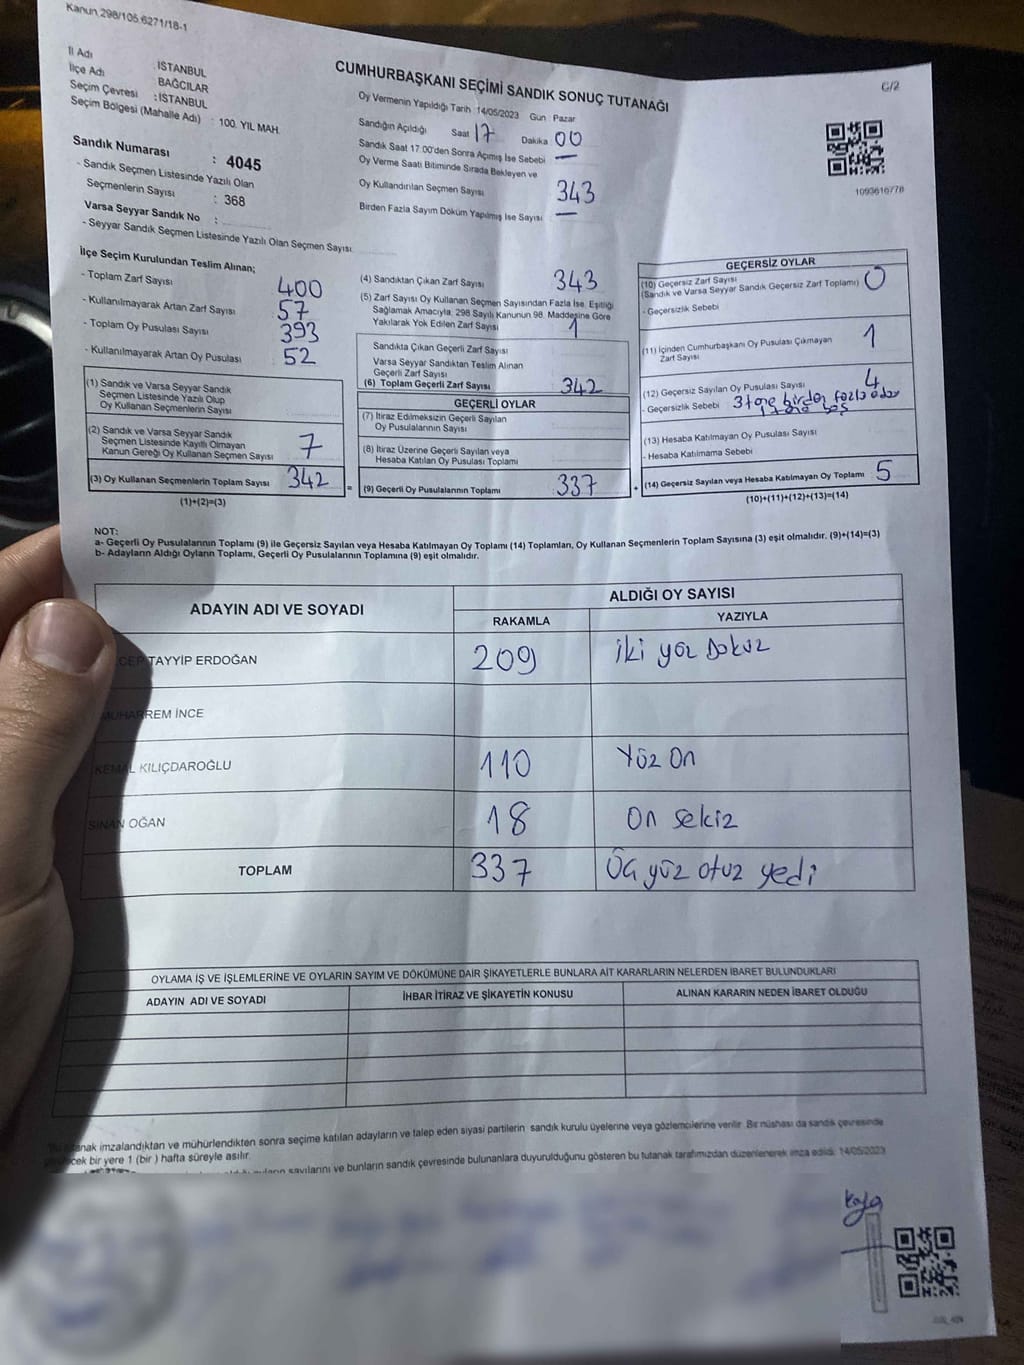 Kanun.298/105.6271/18-1
İl Adı : İSTANBUL
İlçe Adı : BAĞCILAR
Seçim Çevresi : İSTANBUL
Seçim Bölgesi (Mahalle Adı) : 100. YIL MAH.
Sandık Numarası : 4045
- Sandık Seçmen Listesinde Yazılı Olan
Seçmenlerin Sayısı : 368
Varsa Seyyar Sandık No :
- Seyyar Sandık Seçmen Listesinde Yazılı Olan Seçmen Sayısı
CUMHURBAŞKANI SEÇİMİ SANDIK SONUÇ TUTANAĞI
Oy Vermenin Yapıldığı Tarih 14/05/2023 Gün : Pazar
Sandığın Açıldığı Saat 17 Dakika 00
Sandık Saat 17.00'den Sonra Açımış İse Sebebi —
Oy Verme Saati Bitiminde Sırada Bekleyen ve
Oy Kullandırılan Seçmen Sayısı 343
Birden Fazla Sayım Döküm Yapılmış İse Sayısı —
C/2
1093616778
İlçe Seçim Kurulundan Teslim Alınan;
- Toplam Zarf Sayısı 400
- Kullanılmayarak Artan Zarf Sayısı 57
- Toplam Oy Pusulası Sayısı 393
- Kullanılmayarak Artan Oy Pusulası 52
(1) Sandık ve Varsa Seyyar Sandık
Seçmen Listesinde Yazılı Olup
Oy Kullanan Seçmenlerin Sayısı
(2) Sandık ve Varsa Seyyar Sandık
Seçmen Listesinde Kayıtlı Olmayan
Kanun Gereği Oy Kullanan Seçmen Sayısı 7
(3) Oy Kullanan Seçmenlerin Toplam Sayısı 342 =
(1)+(2)=(3)
(4) Sandıktan Çıkan Zarf Sayısı 343
(5) Zarf Sayısı Oy Kullanan Seçmen Sayısından Fazla İse, Eşitliği
Sağlamak Amacıyla, 298 Sayılı Kanunun 98. Maddesine Göre
Yakılarak Yok Edilen Zarf Sayısı 1
Sandıkta Çıkan Geçerli Zarf Sayısı
Varsa Seyyar Sandıktan Teslim Alınan
Geçerli Zarf Sayısı
(6) Toplam Geçerli Zarf Sayısı 342
GEÇERLİ OYLAR
(7) İtiraz Edilmeksizin Geçerli Sayılan
Oy Pusulalarının Sayısı
(8) İtiraz Üzerine Geçerli Sayılan veya
Hesaba Katılan Oy Pusulası Toplamı
(9) Geçerli Oy Pusulalarının Toplamı 337 +
GEÇERSİZ OYLAR
(10) Geçersiz Zarf Sayısı
(Sandık ve Varsa Seyyar Sandık Geçersiz Zarf Toplamı) 0
- Geçersizlik Sebebi
(11) İçinden Cumhurbaşkanı Oy Pusulası Çıkmayan
Zarf Sayısı 1
(12) Geçersiz Sayılan Oy Pusulası Sayısı 4
- Geçersizlik Sebebi 3 tane birden fazla
(13) Hesaba Katılmayan Oy Pusulası Sayısı
- Hesaba Katılmama Sebebi
(14) Geçersiz Sayılan veya Hesaba Katılmayan Oy Toplamı 5
(10)+(11)+(12)+(13)=(14)
NOT:
a- Geçerli Oy Pusulalarının Toplamı (9) ile Geçersiz Sayılan veya Hesaba Katılmayan Oy Toplamı (14) Toplamları, Oy Kullanan Seçmenlerin Toplam Sayısına (3) eşit olmalıdır. (9)+(14)=(3)
b- Adayların Aldığı Oyların Toplamı, Geçerli Oy Pusulalarının Toplamına (9) eşit olmalıdır.
ADAYIN ADI VE SOYADI ALDIĞI OY SAYISI
RAKAMLA YAZIYLA
CEP TAYYİP ERDOĞAN 209 iki yüz Dokuz
MUHARREM İNCE
KEMAL KILIÇDAROĞLU 110 Yüz On
SİNAN OĞAN 18 On sekiz
TOPLAM 337 Üç yüz otuz yedi
OYLAMA İŞ VE İŞLEMLERİNE VE OYLARIN SAYIM VE DÖKÜMÜNE DAİR ŞİKAYETLERLE BUNLARA AİT KARARLARIN NELERDEN İBARET BULUNDUKLARI
ADAYIN ADI VE SOYADI İHBAR İTİRAZ VE ŞİKAYETİN KONUSU ALINAN KARARIN NEDEN İBARET OLDUĞU
tanak imzalandıktan ve mühürlendikten sonra seçime katılan adayların ve talep eden siyasi partilerin sandık kurulu üyelerine veya gözlemcilerine verilir. Bir nüshası da sandık çevresinde
ecek bir yere 1 (bir ) hafta süreyle asılır.
sayılarını ve bunların sandık çevresinde bulunanlara duyurulduğunu gösteren bu tutanak tarafımızdan düzenlenerek imza edildi. 14/05/2023